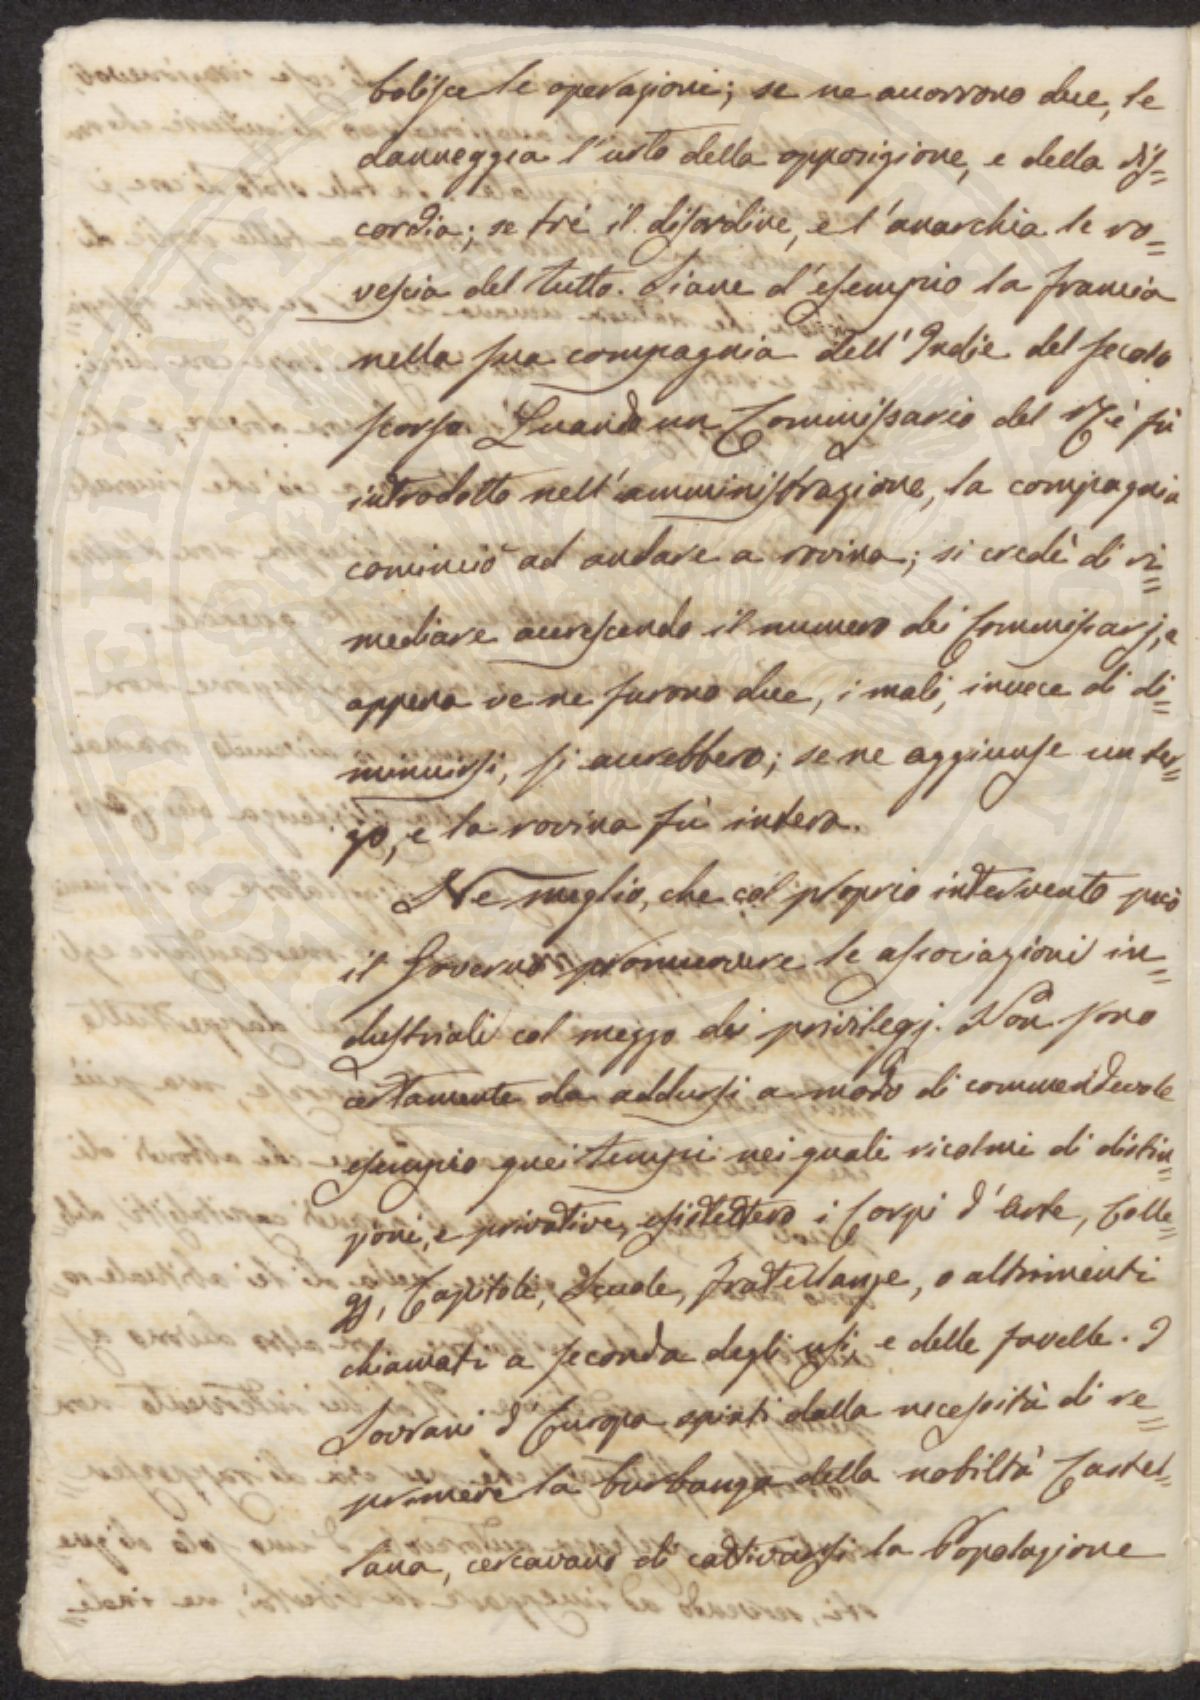 bolisce le operazioni; se ne accorrono due, le
danneggia l'urto della opposizione, e della dis=
cordia; se trè il disordine, e l'anarchia le ro=
vescia del tutto. Siane d'esempio la francia
nella sua compagnia dell'Indie del secolo
scorso. Quando un Commissario del Rè fù
introdotto nell'amministrazione, la compagnia
cominciò ad andare a rovina; si credè di ri=
mediare accrescendo il numero dei Commissarj, e
appena ve ne furono due, i mali, invece di di=
minuirsi, si accrebbero; se ne aggiunse un ter=
zo, e la rovina fù intera.
Ne meglio, che col proprio intervento può
il Governo promuovere le associazioni in=
dustriali col mezzo dei privilegj. Non sono
certamente da addursi a modo di commendevole
esempio quei tempi nei quali ricolmi di distin=
zioni, e privative, esistettero i Corpi d'Arte, Colle=
gj, Capitoli, Scuole, fratellanze, o altrimenti
chiamati a seconda degli usi, e delle favelle. I
Sovrani d'Europa spinti dalla necessità di re=
primere la burbanza della nobiltà Castel=
lana, cercavano di cattivarsi la Popolazione